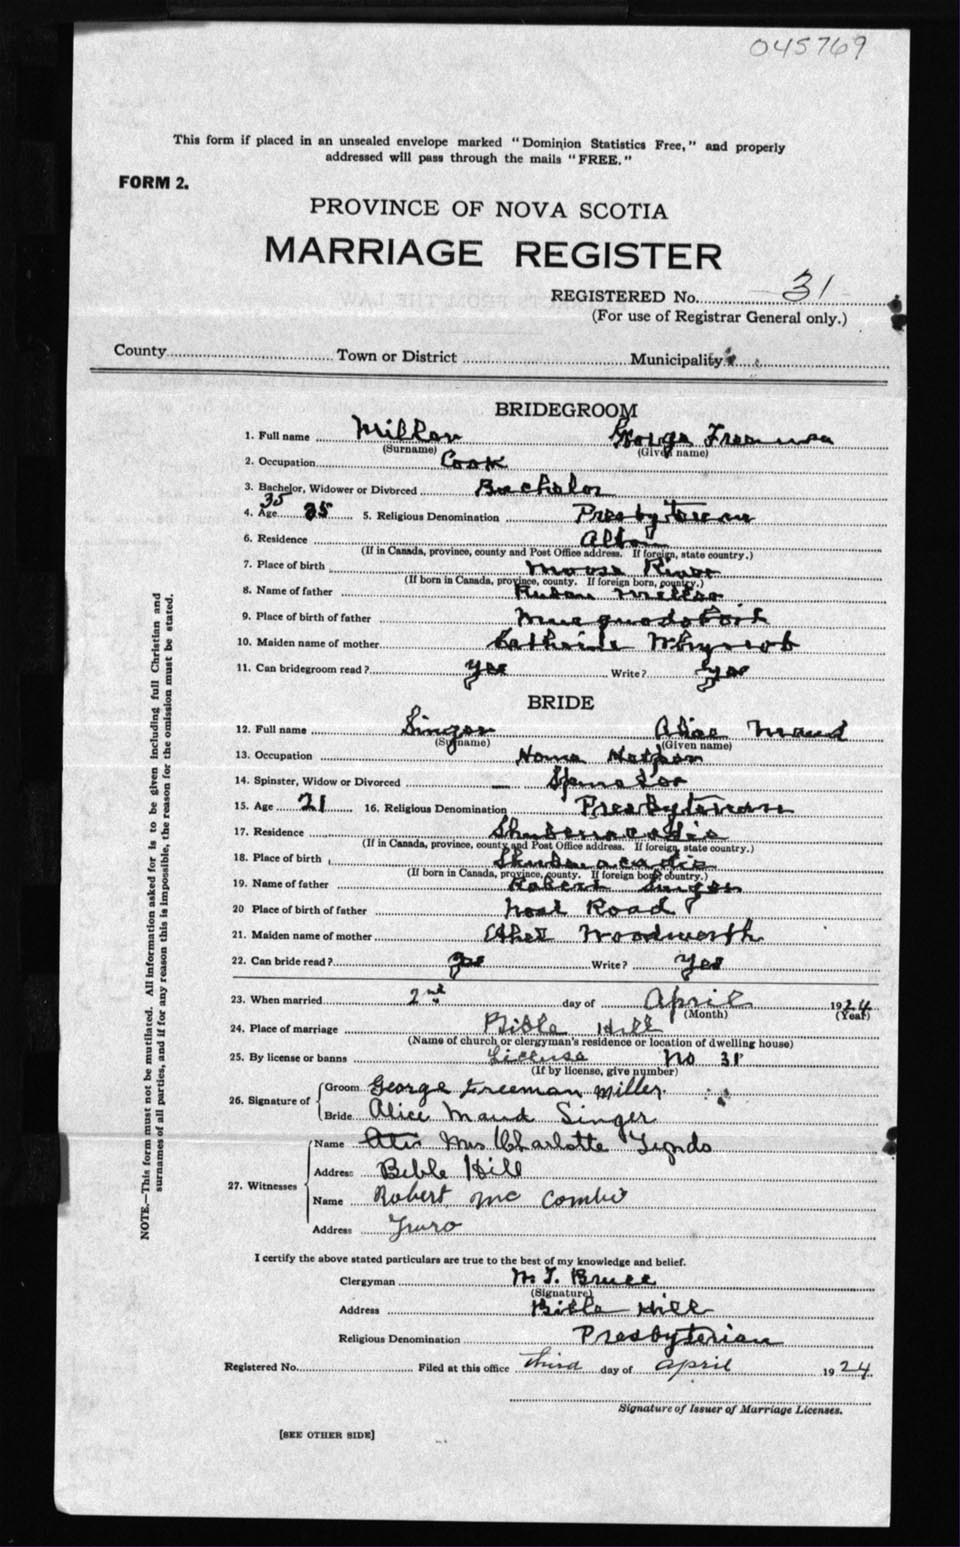 045769
This form if placed in an unsealed envelope marked "Dominion Statistics Free," and properly
addressed will pass through the mails "FREE."
FORM 2.
PROVINCE OF NOVA SCOTIA
MARRIAGE REGISTER
REGISTERED No. 31
(For use of Registrar General only.)
County Town or District Municipality
BRIDEGROOM
1. Full name Miller George Freeman
(Surname) (Given name)
2. Occupation Cook
3. Bachelor, Widower or Divorced Bachelor
35
4. Age 35 5. Religious Denomination Presbyterian
6. Residence Alton
(If in Canada, province, county and Post Office address. If foreign, state country.)
7. Place of birth Moose River
(If born in Canada, province, county. If foreign born, country.)
8. Name of father Ruben Miller
9. Place of birth of father Musquodoboit
10. Maiden name of mother Katherine
11. Can bridegroom read? yes Write? yes
BRIDE
12. Full name Singer Alice Maud
(Surname) (Given name)
13. Occupation Home
14. Spinster, Widow or Divorced
15. Age 21 16. Religious Denomination Presbyterian
17. Residence Shubenacadie
(If in Canada, province, county and Post Office address. If foreign, state country.)
18. Place of birth Shubenacadie
(If born in Canada, province, county. If foreign born, country.)
19. Name of father Robert Singer
20 Place of birth of father Road
21. Maiden name of mother Woodworth
22. Can bride read? yes Write? yes
23. When married 2nd day of April 1924
(Month) (Year)
24. Place of marriage Bible Hill
(Name of church or clergyman's residence or location of dwelling house)
25. By license or banns License No 31
(If by license, give number)
26. Signature of Groom George Freeman Miller
Bride Alice Maud Singer
27. Witnesses Name Mrs Charlotte
Address Bible Hill
Name Robert Mc Combie
Address Truro
I certify the above stated particulars are true to the best of my knowledge and belief.
Clergyman Bruce
(Signature)
Address Bible Hill
Religious Denomination Presbyterian
Registered No. Filed at this office third day of April 1924
Signature of Issuer of Marriage Licenses.
[SEE OTHER SIDE]
NOTE.—This form must not be mutilated. All information asked for is to be given including full Christian and
surnames of all parties, and if for any reason this is impossible, the reason for the omission must be stated.